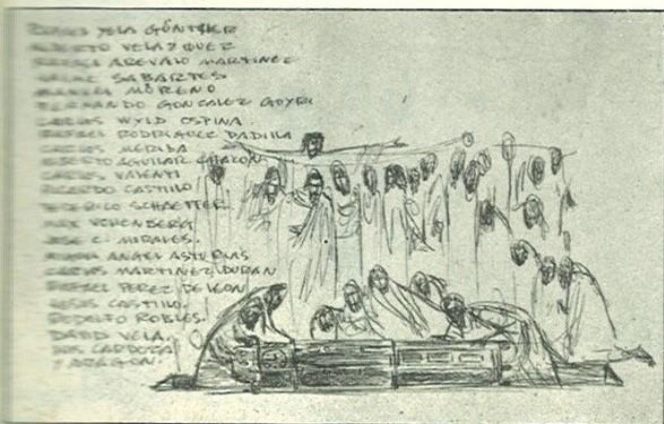 YELA GÜNTHER
ALBERTO VELAZQUEZ
AREVALO MARTINEZ
JAIME SABARTES
MORENO
FERNANDO GONZALEZ GOYRI
CARLOS WYLD OSPINA.
RAFAEL RODRIGUEZ PADILLA
CARLOS MERIDA
HUMBERTO AGUILAR CHACON
CARLOS VALENTI
RICARDO CASTILLO
FEDERICO SCHAEFFER
MAX
JOSE C. MORALES.
MIGUEL ANGEL ASTURIAS
CARLOS MARTINEZ DURAN
RAFAEL PEREZ DE LEON
JESUS CASTILLO.
RODOLFO ROBLES.
DAVID VELA.
LUIS CARDOZA
Y ARAGON.